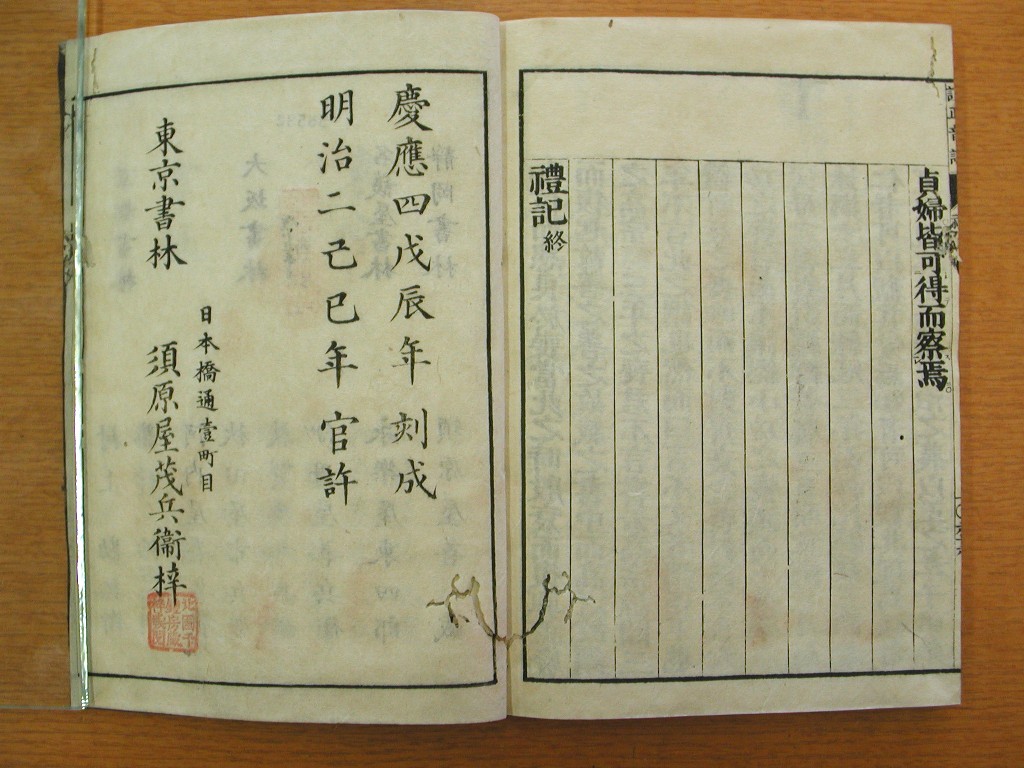 貞婦皆可得而察焉
禮記終
慶應四戊辰年刻成
明治二己巳年官許
日本橋通壹町目
東京書林 須原屋茂兵衞梓